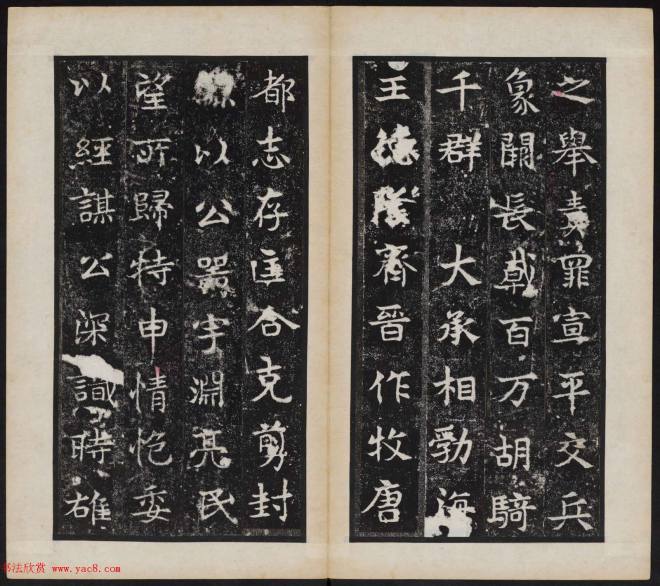 之舉責罪宣平交兵
象闕長戟百万胡騎
千群大承相勃海
王德隆齊晉作牧唐
都志存匡合克剪封
以公器宇淵亮民
望所歸特申情悒委
以經謀公深識時雄
书法欣赏 www.yac8.com